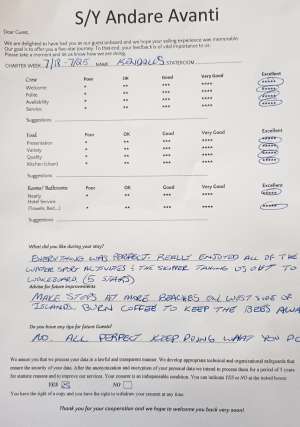 S/Y Andare Avanti
Dear Guest,
We are delighted to have had you as our guest onboard and we hope your sailing experience was memorable.
Our goal is to offer you a five-star journey. To that end, your feedback is of vital importance to us.
Please take a moment and let us know how we are doing.
CHARTER WEEK 7/18 - 7/25 NAME KENDALLS STATEROOM
Crew Poor OK Good Very Good Excellent
Welcome * ** *** **** *****
Polite * ** *** **** *****
Availability * ** *** **** *****
Service * ** *** **** *****
Suggestions
Food Poor OK Good Very Good Excellent
Presentation * ** *** **** *****
Variety * ** *** **** *****
Quality * ** *** **** *****
Kitchen (clean) * ** *** **** *****
Suggestions
Rooms/ Bathrooms Poor OK Good Very Good Excellent
Neatly * ** *** **** *****
Hotel Service
(Towels, Bed,..) * ** *** **** *****
Suggestions
What did you like during your stay?
EVERYTHING WAS PERFECT. REALLY ENJOYED ALL OF THE
WATER SPORT ACTIVITIES & THE SKIPPER TAKING US OUT TO
WAKEBOARD. (5 STARS)
Advice for future improvements
MAKE STOPS AT MORE BEACHES ON WEST SIDE OF
ISLANDS. BURN COFFEE TO KEEP THE BEES AWA
Do you have any tips for future Guests?
NO. ALL PERFECT. KEEP DOING WHAT YOU DO
We assure you that we process your data in a lawful and transparent manner. We develop appropriate technical and organizational safeguards that
ensure the security of your data. After the anonymization and encryption of your personal data we intend to process them for a period of 5 years
for statistic reasons and to improve our services. Your consent is an indispensable condition. You can indicate YES or NO at the ticked boxes:
YES NO
You have the right of a copy and you have the right to withdraw your consent at any time.
Thank you for your cooperation and we hope to welcome you back very soon!